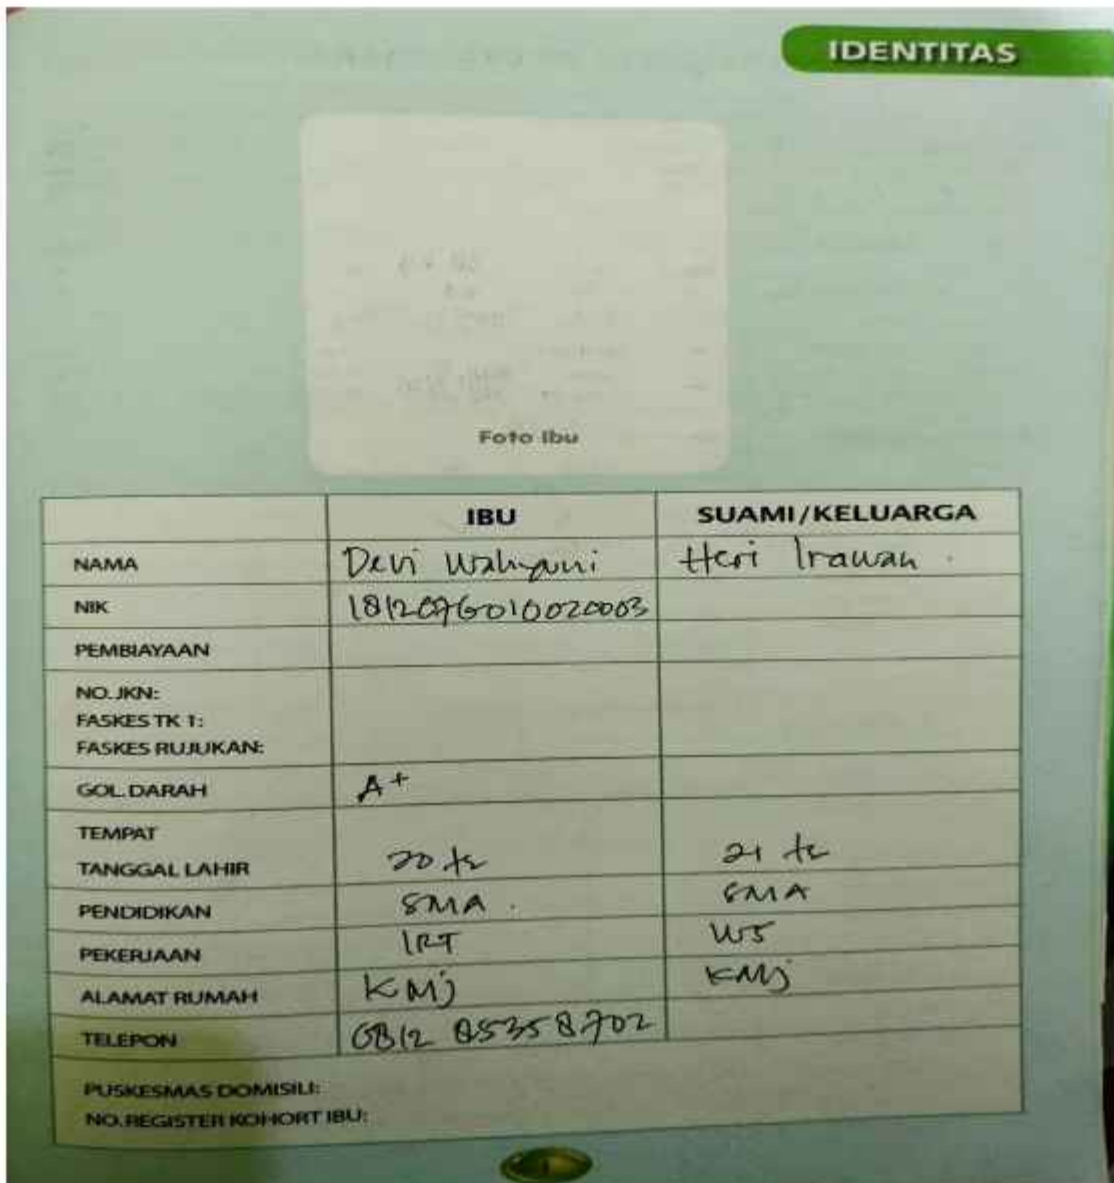 IDENTITAS
Foto Ibu
IBU SUAMI/KELUARGA
NAMA Devi Wahyuni Heri Irawan
NIK
PEMBIAYAAN
NO. JKN:
FASKES TK 1:
FASKES RUJUKAN:
GOL. DARAH A+
TEMPAT
TANGGAL LAHIR 20 21
PENDIDIKAN SMA SMA
PEKERJAAN IRT WS
ALAMAT RUMAH KMj KMj
TELEPON 0812 85358702
PUSKESMAS DOMISILI:
NO. REGISTER KOHORT IBU: